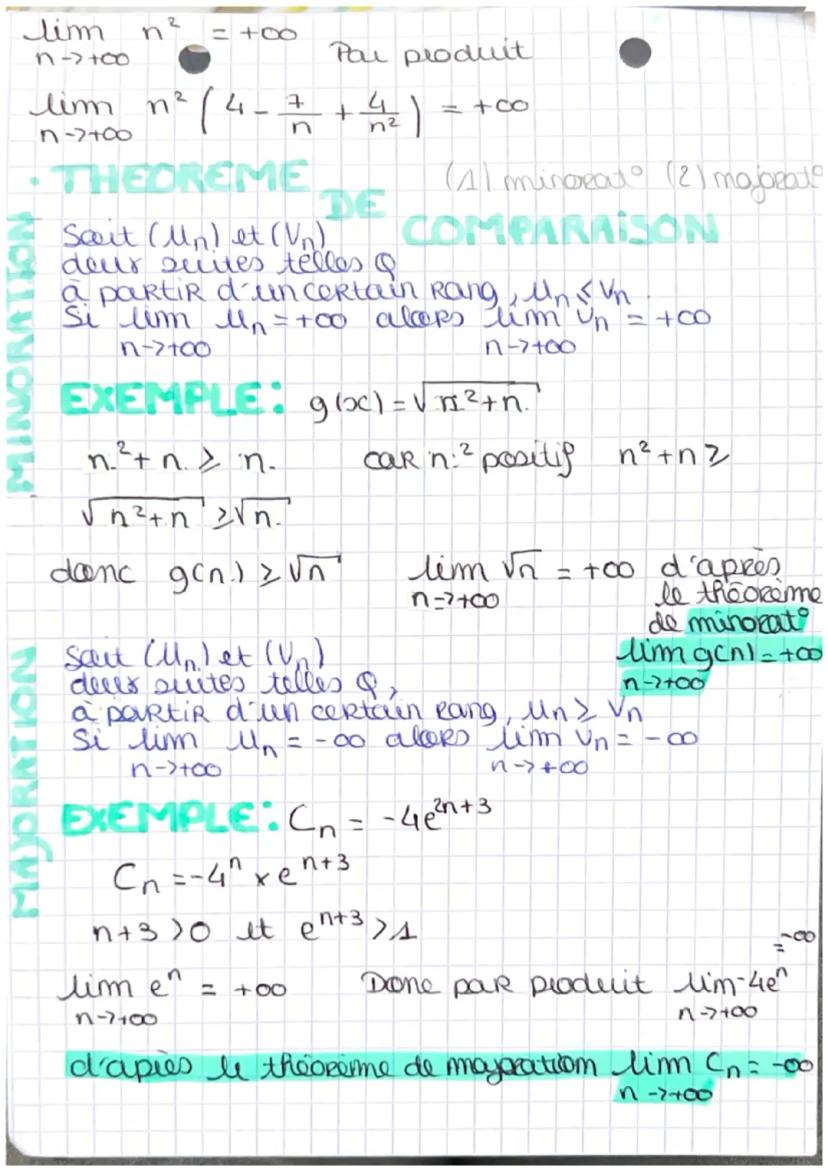 lim n² = +∞
n->+∞
Par produit
lim n² (4 - 7/n + 4/n²) = +∞
n->+∞
• THEOREME DE COMPARAISON
(1) minorat° (2) majorat°
MINORATION
Soit (Un) et (Vn)
deux suites telles Q
à partir d'un certain rang, Un ≤ Vn
Si lim Un = +∞ alors lim Vn = +∞
n->+∞ n->+∞
EXEMPLE: g(x) = √n²+n
n²+n ≥ n car n² positif n²+n ≥
√n²+n ≥ √n
donc g(n) ≥ √n lim √n = +∞ d'après
n->+∞ le théorème
de minorat°
lim g(n) = +∞
n->+∞
MAJORATION
Soit (Un) et (Vn)
deux suites telles Q,
à partir d'un certain rang, Un ≥ Vn
Si lim Un = -∞ alors lim Vn = -∞
n->+∞ n->+∞
EXEMPLE: Cn = -4e²ⁿ⁺³
Cn = -4ⁿ x eⁿ⁺³
n+3 >0 et eⁿ⁺³ >1
lim eⁿ = +∞ Donc par produit lim -4eⁿ = -∞
n->+∞ n->+∞
d'après le théorème de majoration lim Cn = -∞
n->+∞